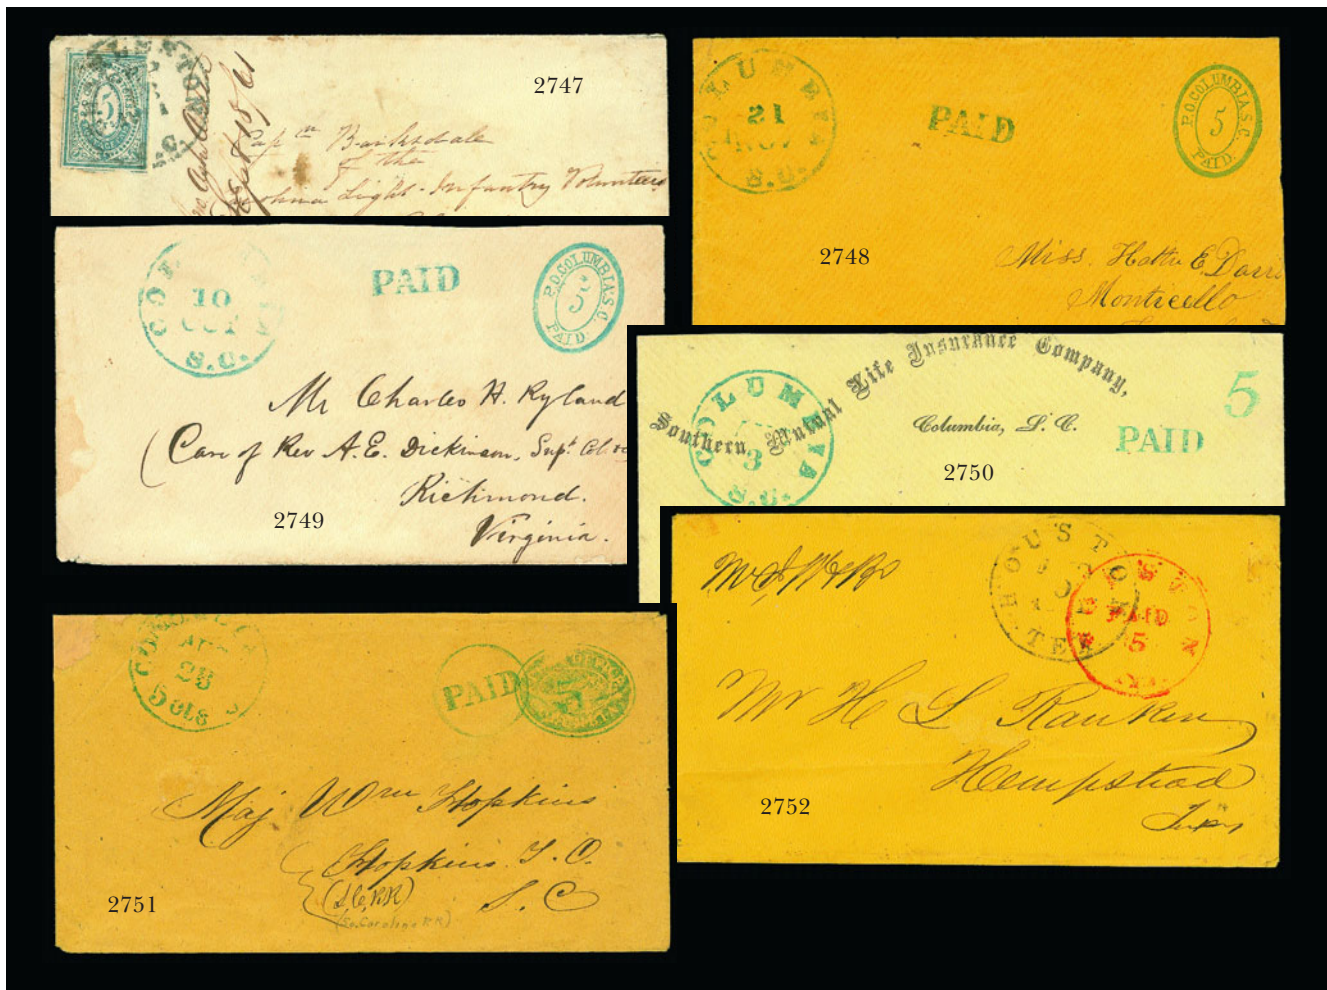 CHARLESTON
S.C.
5
2747
Capt Barksdale
of the
Light Infantry Volunteers
COLUMBIA
21
NOV
S.C.
PAID
P.O. COLUMBIA, S.C.
5
PAID.
2748
Miss. Hattie E. Davis
Monticello
10
OCT
S.C.
PAID
P.O. COLUMBIA, S.C.
5c
PAID
Mr Charles H. Ryland
(Care of Rev A. E. Dickinson, Supt Col
Richmond.
Virginia.
2749
Southern Mutual Life Insurance Company,
Columbia, S. C.
COLUMBIA
3
S.C.
5
PAID
2750
AUG
25
5 cts
PAID
5
Maj Wm Hopkins
Hopkins T. O.
(S.C.RR)
S. C
(So. Carolina RR)
2751
HOUSTON
TEX
GALVESTON
PAID
5
Mr H L Rankin
Hempstead
Texas
2752